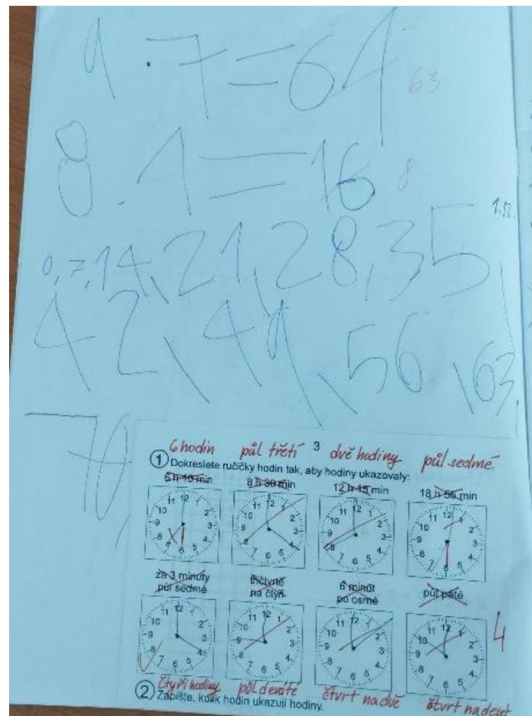 9 · 7 = 64 63
8 · 1 = 16 8
1.12.
0, 7, 14, 21, 28, 35,
42, 49, 56, 63,
70
3
6 hodin půl třetí dvě hodiny půl sedmé
1 Dokreslete ručičky hodin tak, aby hodiny ukazovaly:
5 h 10 min 8 h 30 min 12 h 15 min 18 h 55 min
za 3 minuty půl sedmé
tříčtvrtě na čtyři
6 minut po osmé
půl páté
4
čtyři hodiny půl deváté čtvrt na dvě čtvrt na devět
2 Zapište, kolik hodin ukazují hodiny.